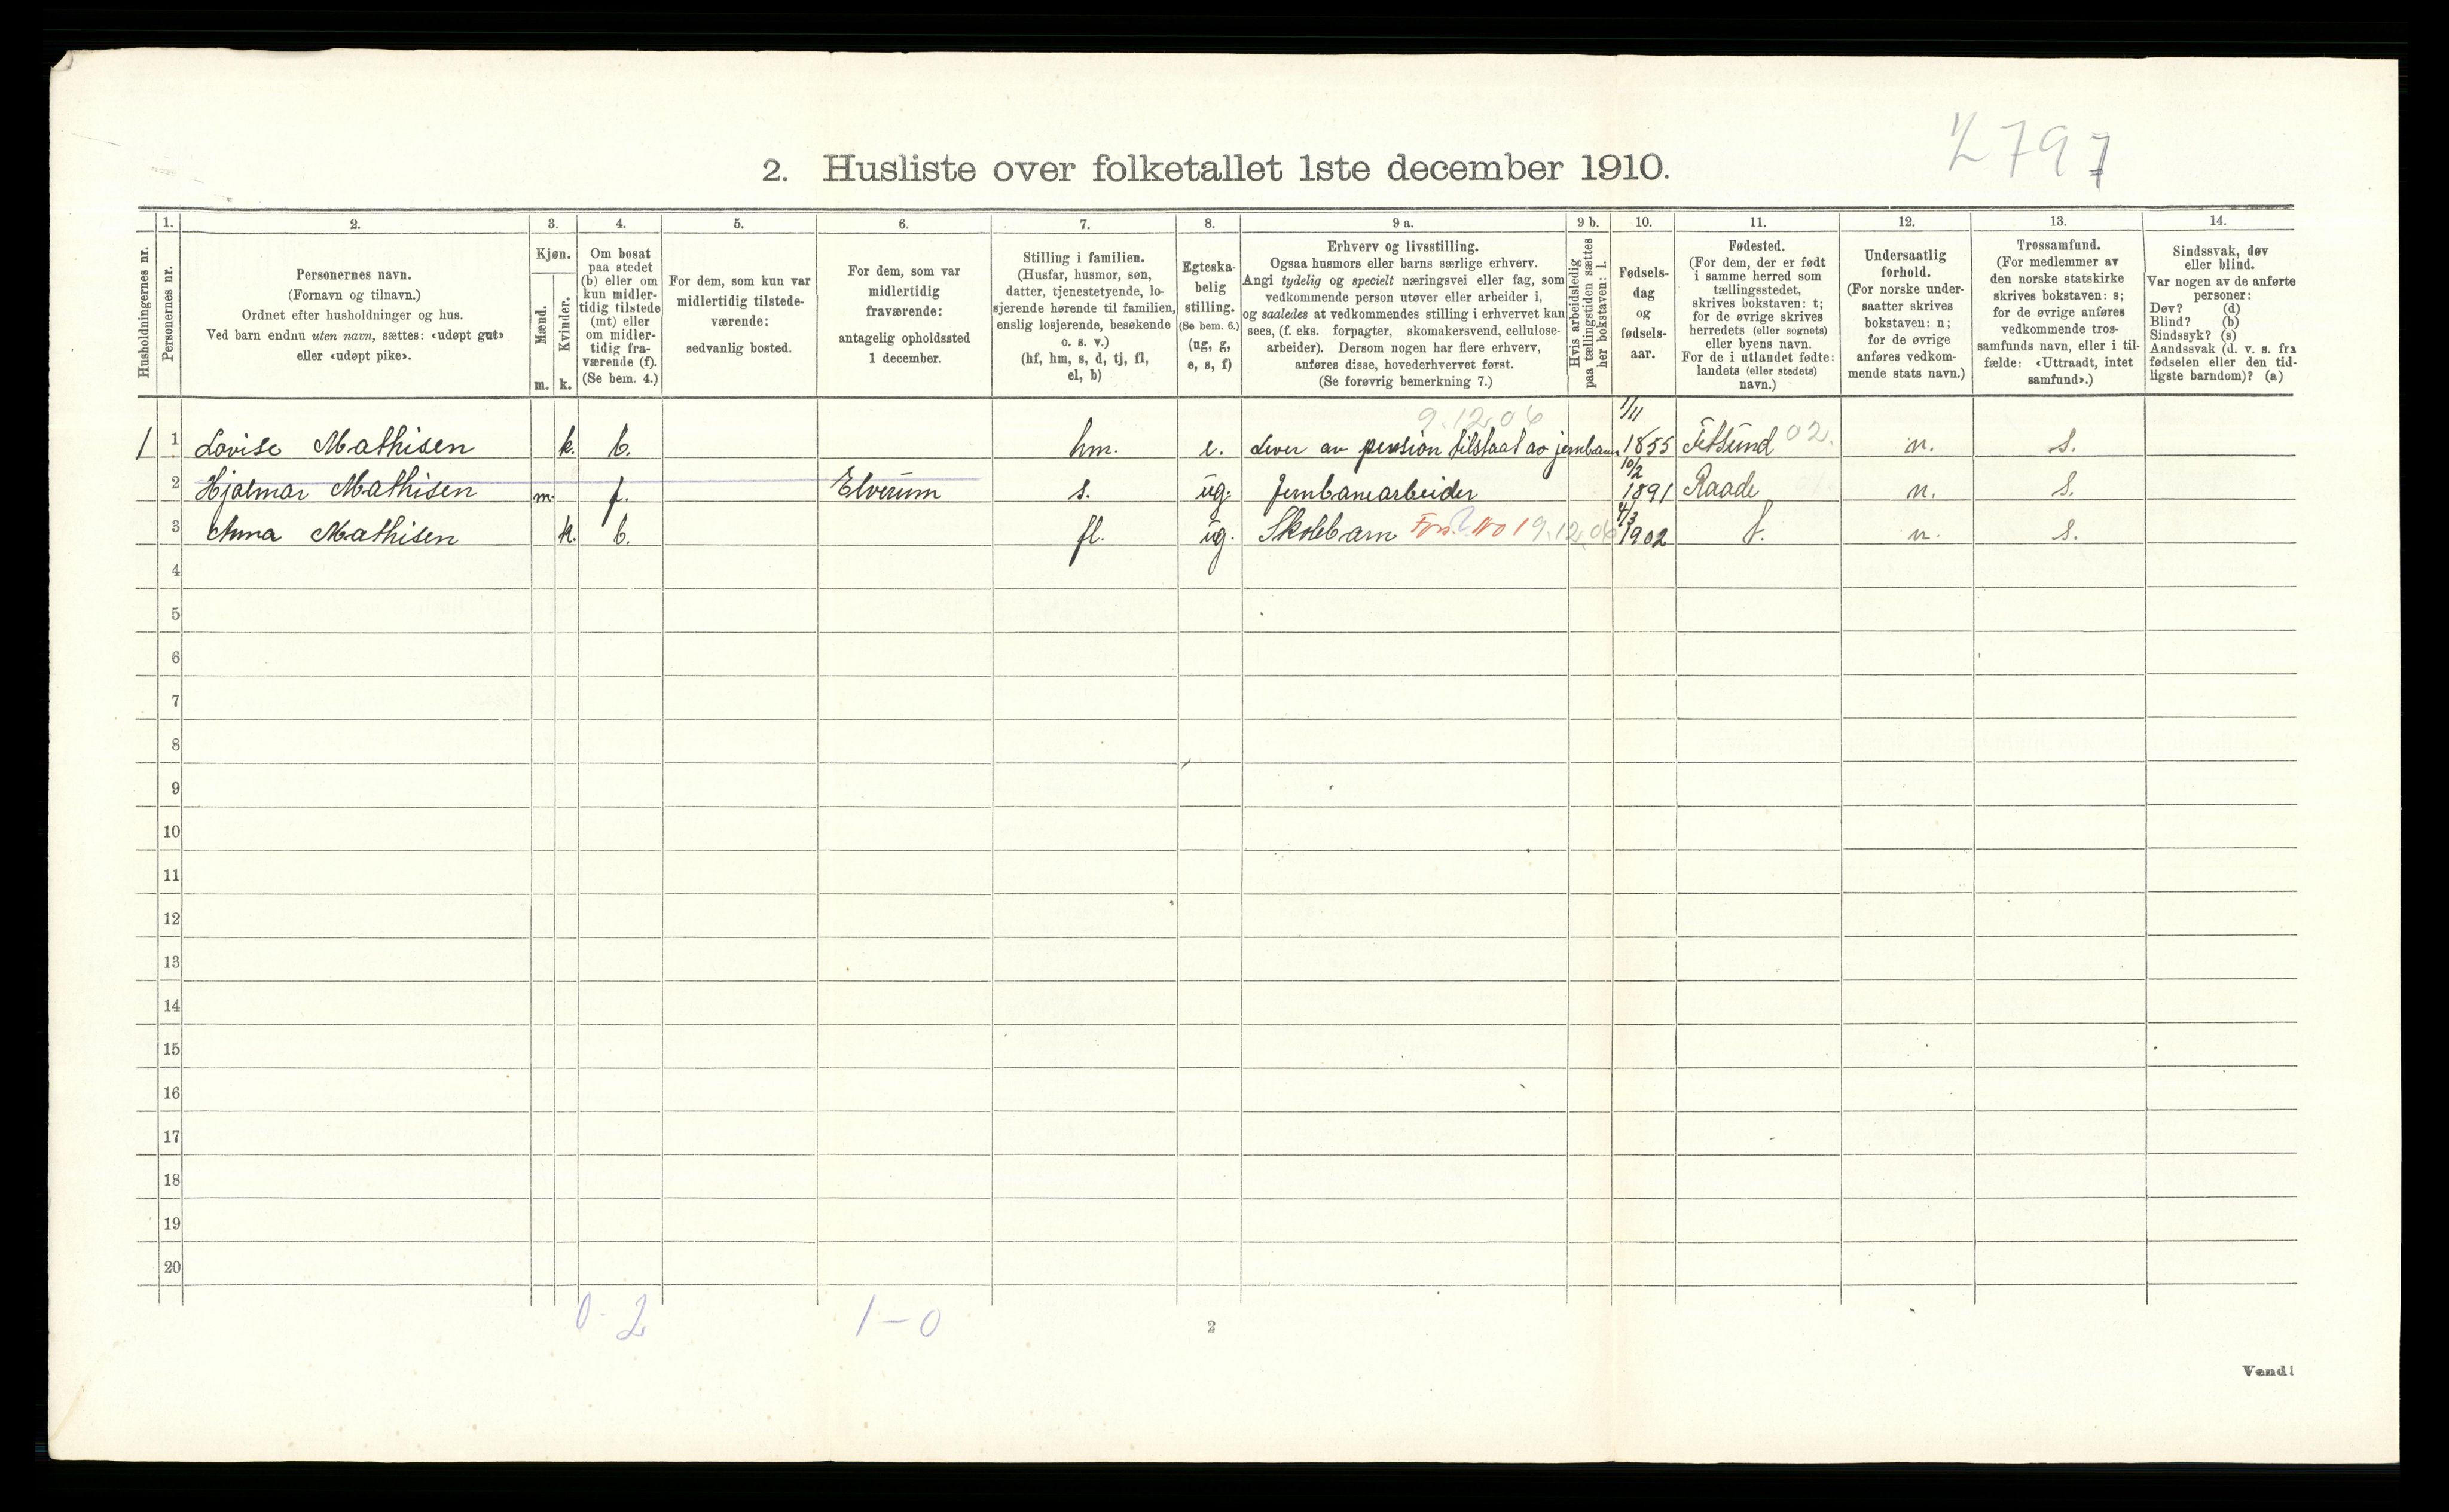 2797
2. Husliste over folketallet 1ste december 1910.
Husholdningernes nr.
1.
Personernes nr.
2.
Personernes navn.
(Fornavn og tilnavn.)
Ordnet efter husholdninger og hus.
Ved barn endnu uten navn, sættes: «udøpt gut»
eller «udøpt pike».
3.
Kjøn.
Mænd.
Kvinder.
m. k.
4.
Om bosat
paa stedet
(b) eller om
kun midler-
tidig tilstede
(mt) eller
om midler-
tidig fra-
værende (f).
(Se bem. 4.)
5.
For dem, som kun var
midlertidig tilstede-
værende:
sedvanlig bosted.
6.
For dem, som var
midlertidig
fraværende:
antagelig opholdssted
1 december.
7.
Stilling i familien.
(Husfar, husmor, søn,
datter, tjenestetyende, lo-
sjerende hørende til familien,
enslig losjerende, besøkende
o. s. v.)
(hf, hm, s, d, tj, fl,
el, b)
8.
Egteska-
belig
stilling.
(Se bem. 6.)
(ug, g,
e, s, f)
9 a.
Erhverv og livsstilling.
Ogsaa husmors eller barns særlige erhverv.
Angi tydelig og specielt næringsvei eller fag, som
vedkommende person utøver eller arbeider i,
og saaledes at vedkommendes stilling i erhvervet kan
sees, (f. eks. forpagter, skomakersvend, cellulose-
arbeider). Dersom nogen har flere erhverv,
anføres disse, hovederhvervet først.
(Se forøvrig bemerkning 7.)
9 b.
Hvis arbeidsledig
paa tællingstiden sættes
her bokstaven: l.
10.
Fødsels-
dag
og
fødsels-
aar.
11.
Fødested.
(For dem, der er født
i samme herred som
tællingsstedet,
skrives bokstaven: t;
for de øvrige skrives
herredets (eller sognets)
eller byens navn.
For de i utlandet fødte:
landets (eller stedets)
navn.)
12.
Undersaatlig
forhold.
(For norske under-
saatter skrives
bokstaven: n;
for de øvrige
anføres vedkom-
mende stats navn.)
13.
Trossamfund.
(For medlemmer av
den norske statskirke
skrives bokstaven: s;
for de øvrige anføres
vedkommende tros-
samfunds navn, eller i til-
fælde: «Uttraadt, intet
samfund».)
14.
Sindssvak, døv
eller blind.
Var nogen av de anførte
personer:
Døv? (d)
Blind? (b)
Sindssyk? (s)
Aandssvak (d. v. s. fra
fødselen eller den tid-
ligste barndom)? (a)
9.12.06 1/11
1 1 Lovise Mathisen k. b. hm. e. Lever av pension tilstaat av jernbanen 1855 Fetsund 02. n. s.
10/2
2 Hjalmar Mathisen m. f. Elverum s. ug. Jernbanearbeider 1891 Raade n. s.
4/3
3 Anna Mathisen k. b. fl. ug. Skolebarn Fors. No 1 9.12.06 1902 t. n. s.
4
5
6
7
8
9
10
11
12
13
14
15
16
17
18
19
20
0-2 1-0
2
Vend!